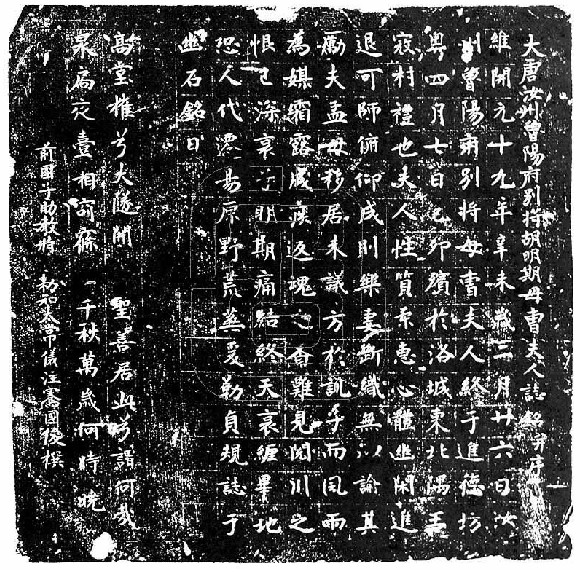 大唐汝州魯陽府別將胡明期母曹夫人誌銘并序
維開元十九年辛未歲三月廿六日汝
州魯陽府別將母曹夫人終于進德坊
粵四月七日己卯殯於洛城東北隅王
寇村禮也夫人性質柔惠心體幽閑進
退可師俯仰成則樂妻斷織無以諭其
夫孟母移居未議方於訓子而風雨
為媒霜露成疾返魂之香難見閱川之
恨已深哀子明期痛結終天哀纏畢地
恐人代遷易原野荒蕪爰勒貞規誌于
幽石銘曰
高堂摧兮大隧開 聖善居此兮詣何哉
泉扃夜臺相窅 一千秋萬歲何時晚
前國子助教 勅和太常儀注 國 撰